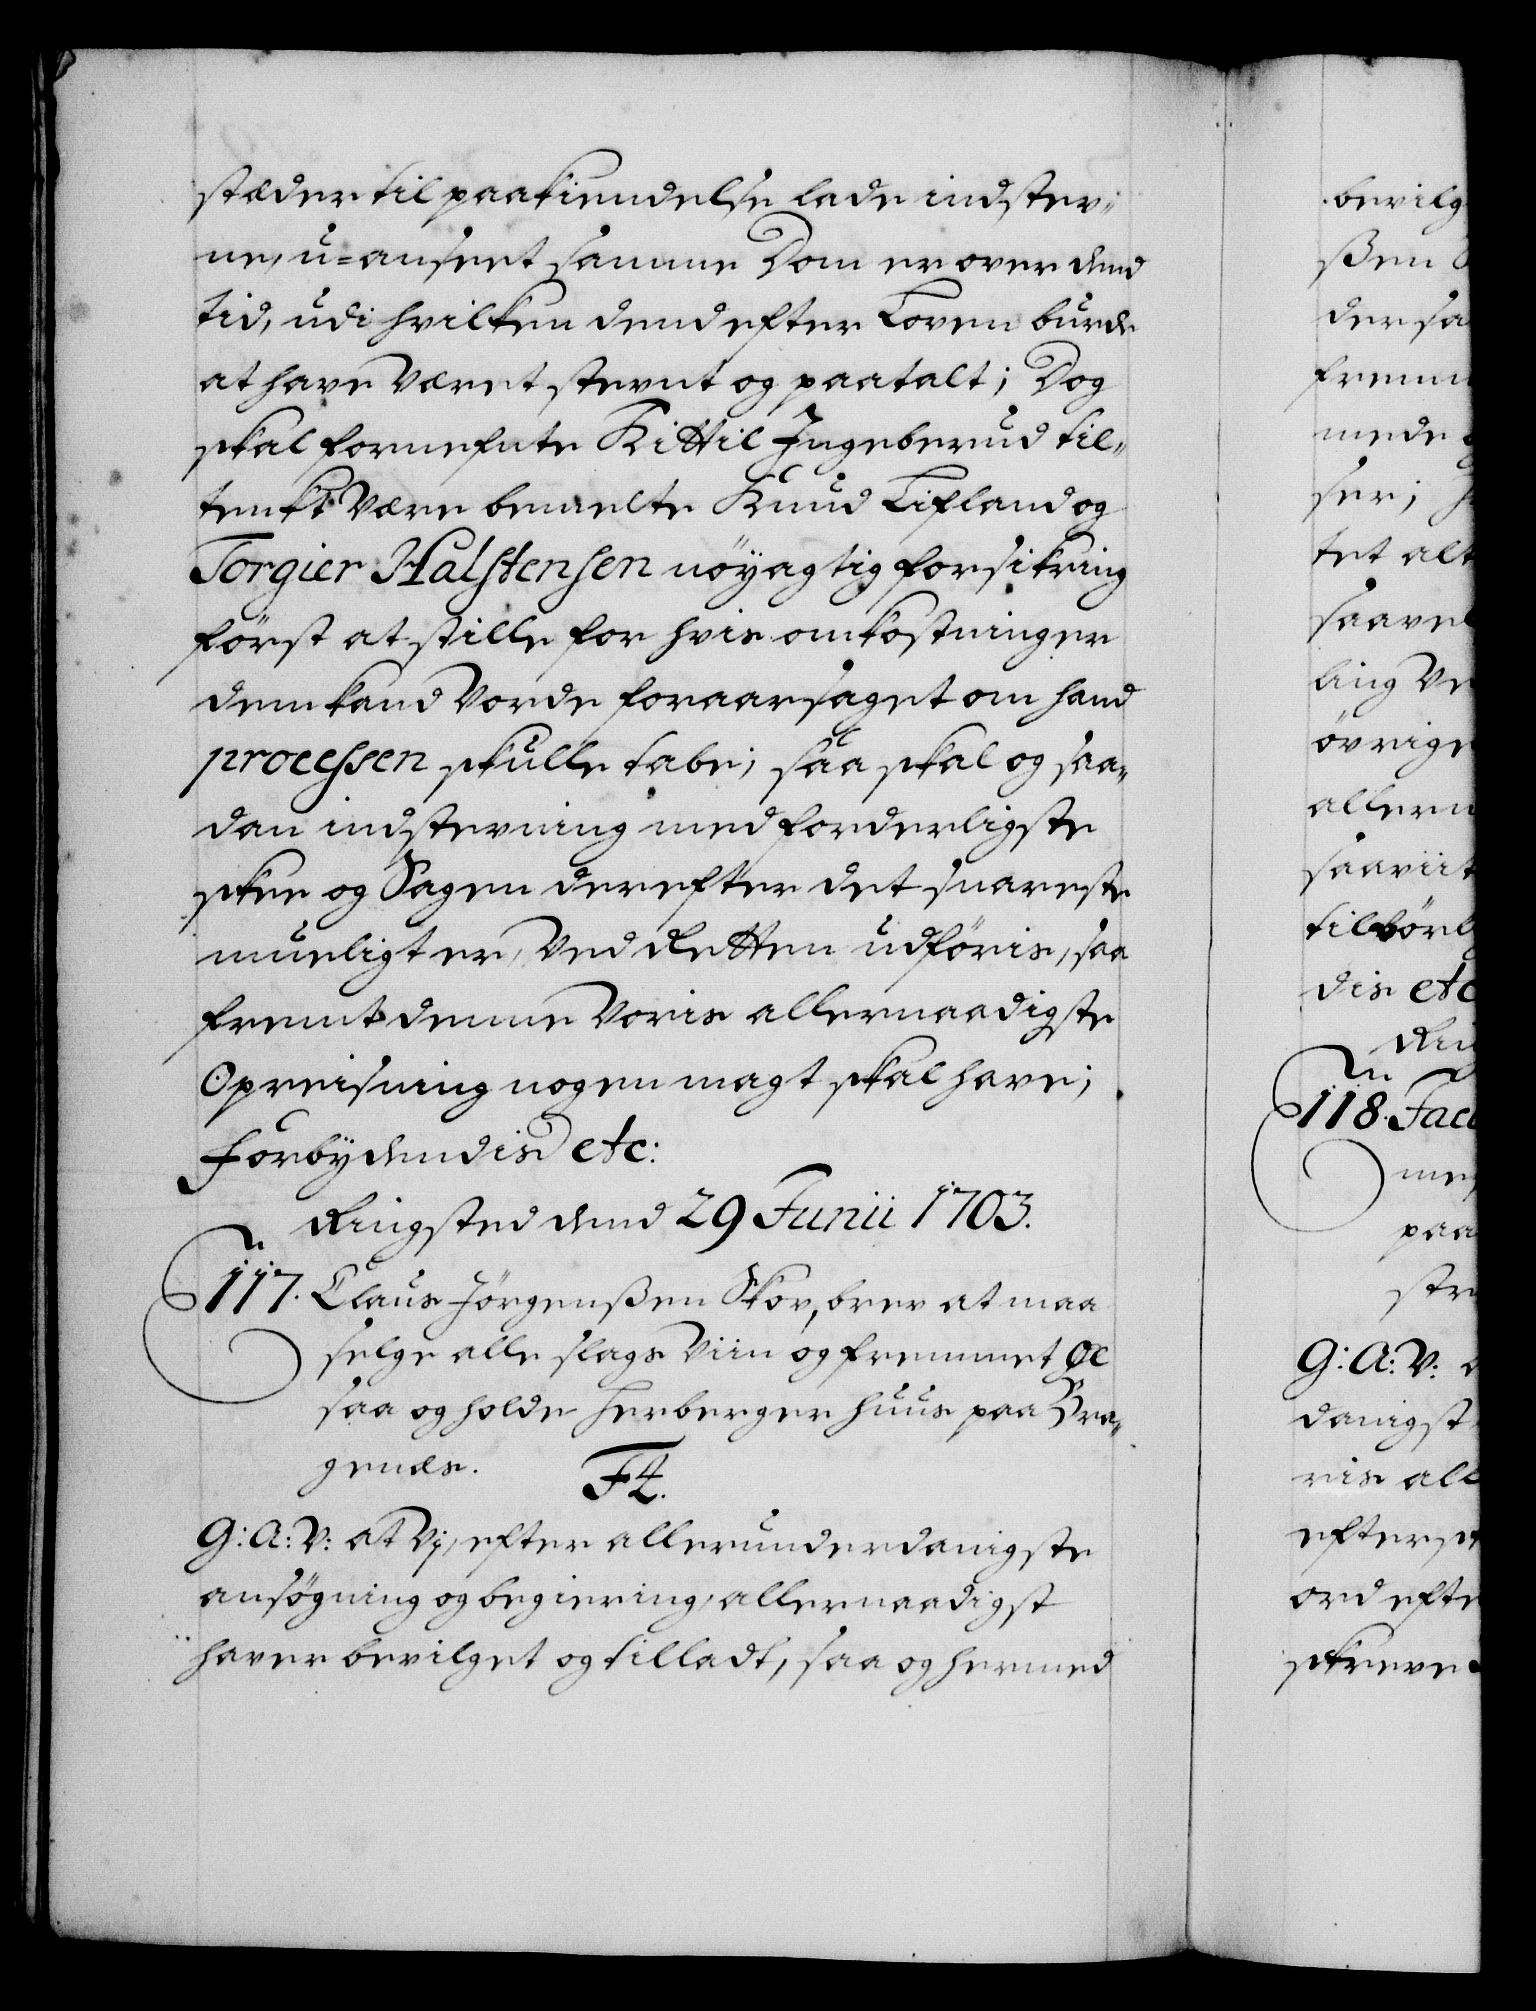 stæder til paakiendelse lade indstev¬
ne, u=anseet samme Dom er over dend
tid, udi hvilken dend efter Loven burde
at have været stevnt og paatalt; Dog
skal fornefnte Kittil Ingeberud til¬
tenkt være bemelte Knud Lifland og
Torgier Halstensen nöyagtig forsikring
först at stille for hvis omkostninger
dem kand vorde foraarsaget om hand
processen skulle tabe; saa skal og saa¬
dan indstevning med forderligste
skee og Sagen derefter det snareste
mueligt er, ved Retten udföris, saa
fremt denne Voris allernaadigste
Opreisning nogen magt skal have;
Forbydendis etc:
Ringsted dend 29 Junii 1703.
117. Claus Jörgenßen Skov, brev at maa
selge alle slags Viin og fremmet Øl
saa og holde Herberger huus paa Bra¬
genæs.
F4.
G: A: V: at Vj, efter allerunderdanigste
ansögning og begiering, allernaadigst
haver bevilget og tilladt, saa og hermed
bevilg
ßen
der sa
fremm
mede
ser;
tet alt
saavel
ling Ve
övrige
allern
saaviit
tilbörlig
dis etc
Rin
118. Jac
me
paa
str
G: A: V:
danigst
ris all
efters
ord efte
skreve